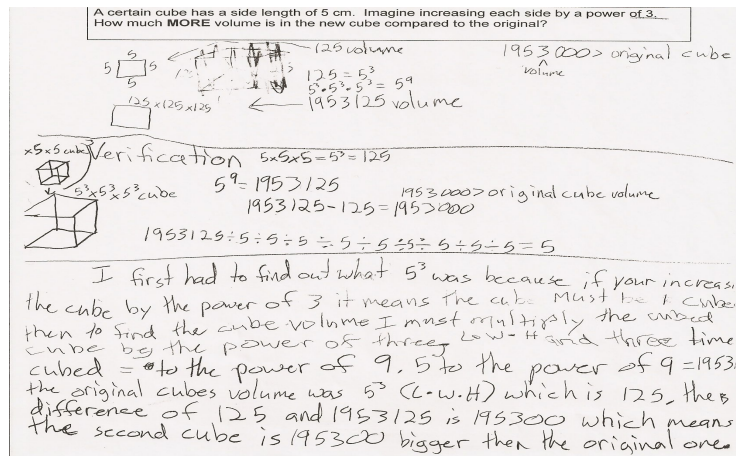 A certain cube has a side length of 5 cm. Imagine increasing each side by a power of 3.
How much MORE volume is in the new cube compared to the original?
5
5 5
5
125 volume
125 = 5³
5³•5³•5³ = 5⁹
1953125 volume
125 x 125 x 125
1953000> original cube
volume
x5x5 cube
Verification 5x5x5=5³=125
5³x5³x5³ cube
5⁹=1953125
1953125-125=1953000
1953000>original cube volume
1953125÷5÷5÷5÷5÷5÷5÷5÷5=5
I first had to find out what 5³ was because if your increasi
the cube by the power of 3 it means The cube Must be cube
then to find the cube volume I must multiply the cubed
cube by the power of three L•W•H and three time
cubed = to the power of 9. 5 to the power of 9 = 1953
the original cubes volume was 5³ (L.W.H) which is 125, the
difference of 125 and 1953125 is 195300 which means
the second cube is 195300 bigger then the original one.